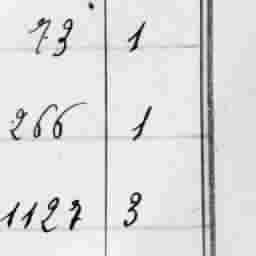 73 1
266 1
1127 3